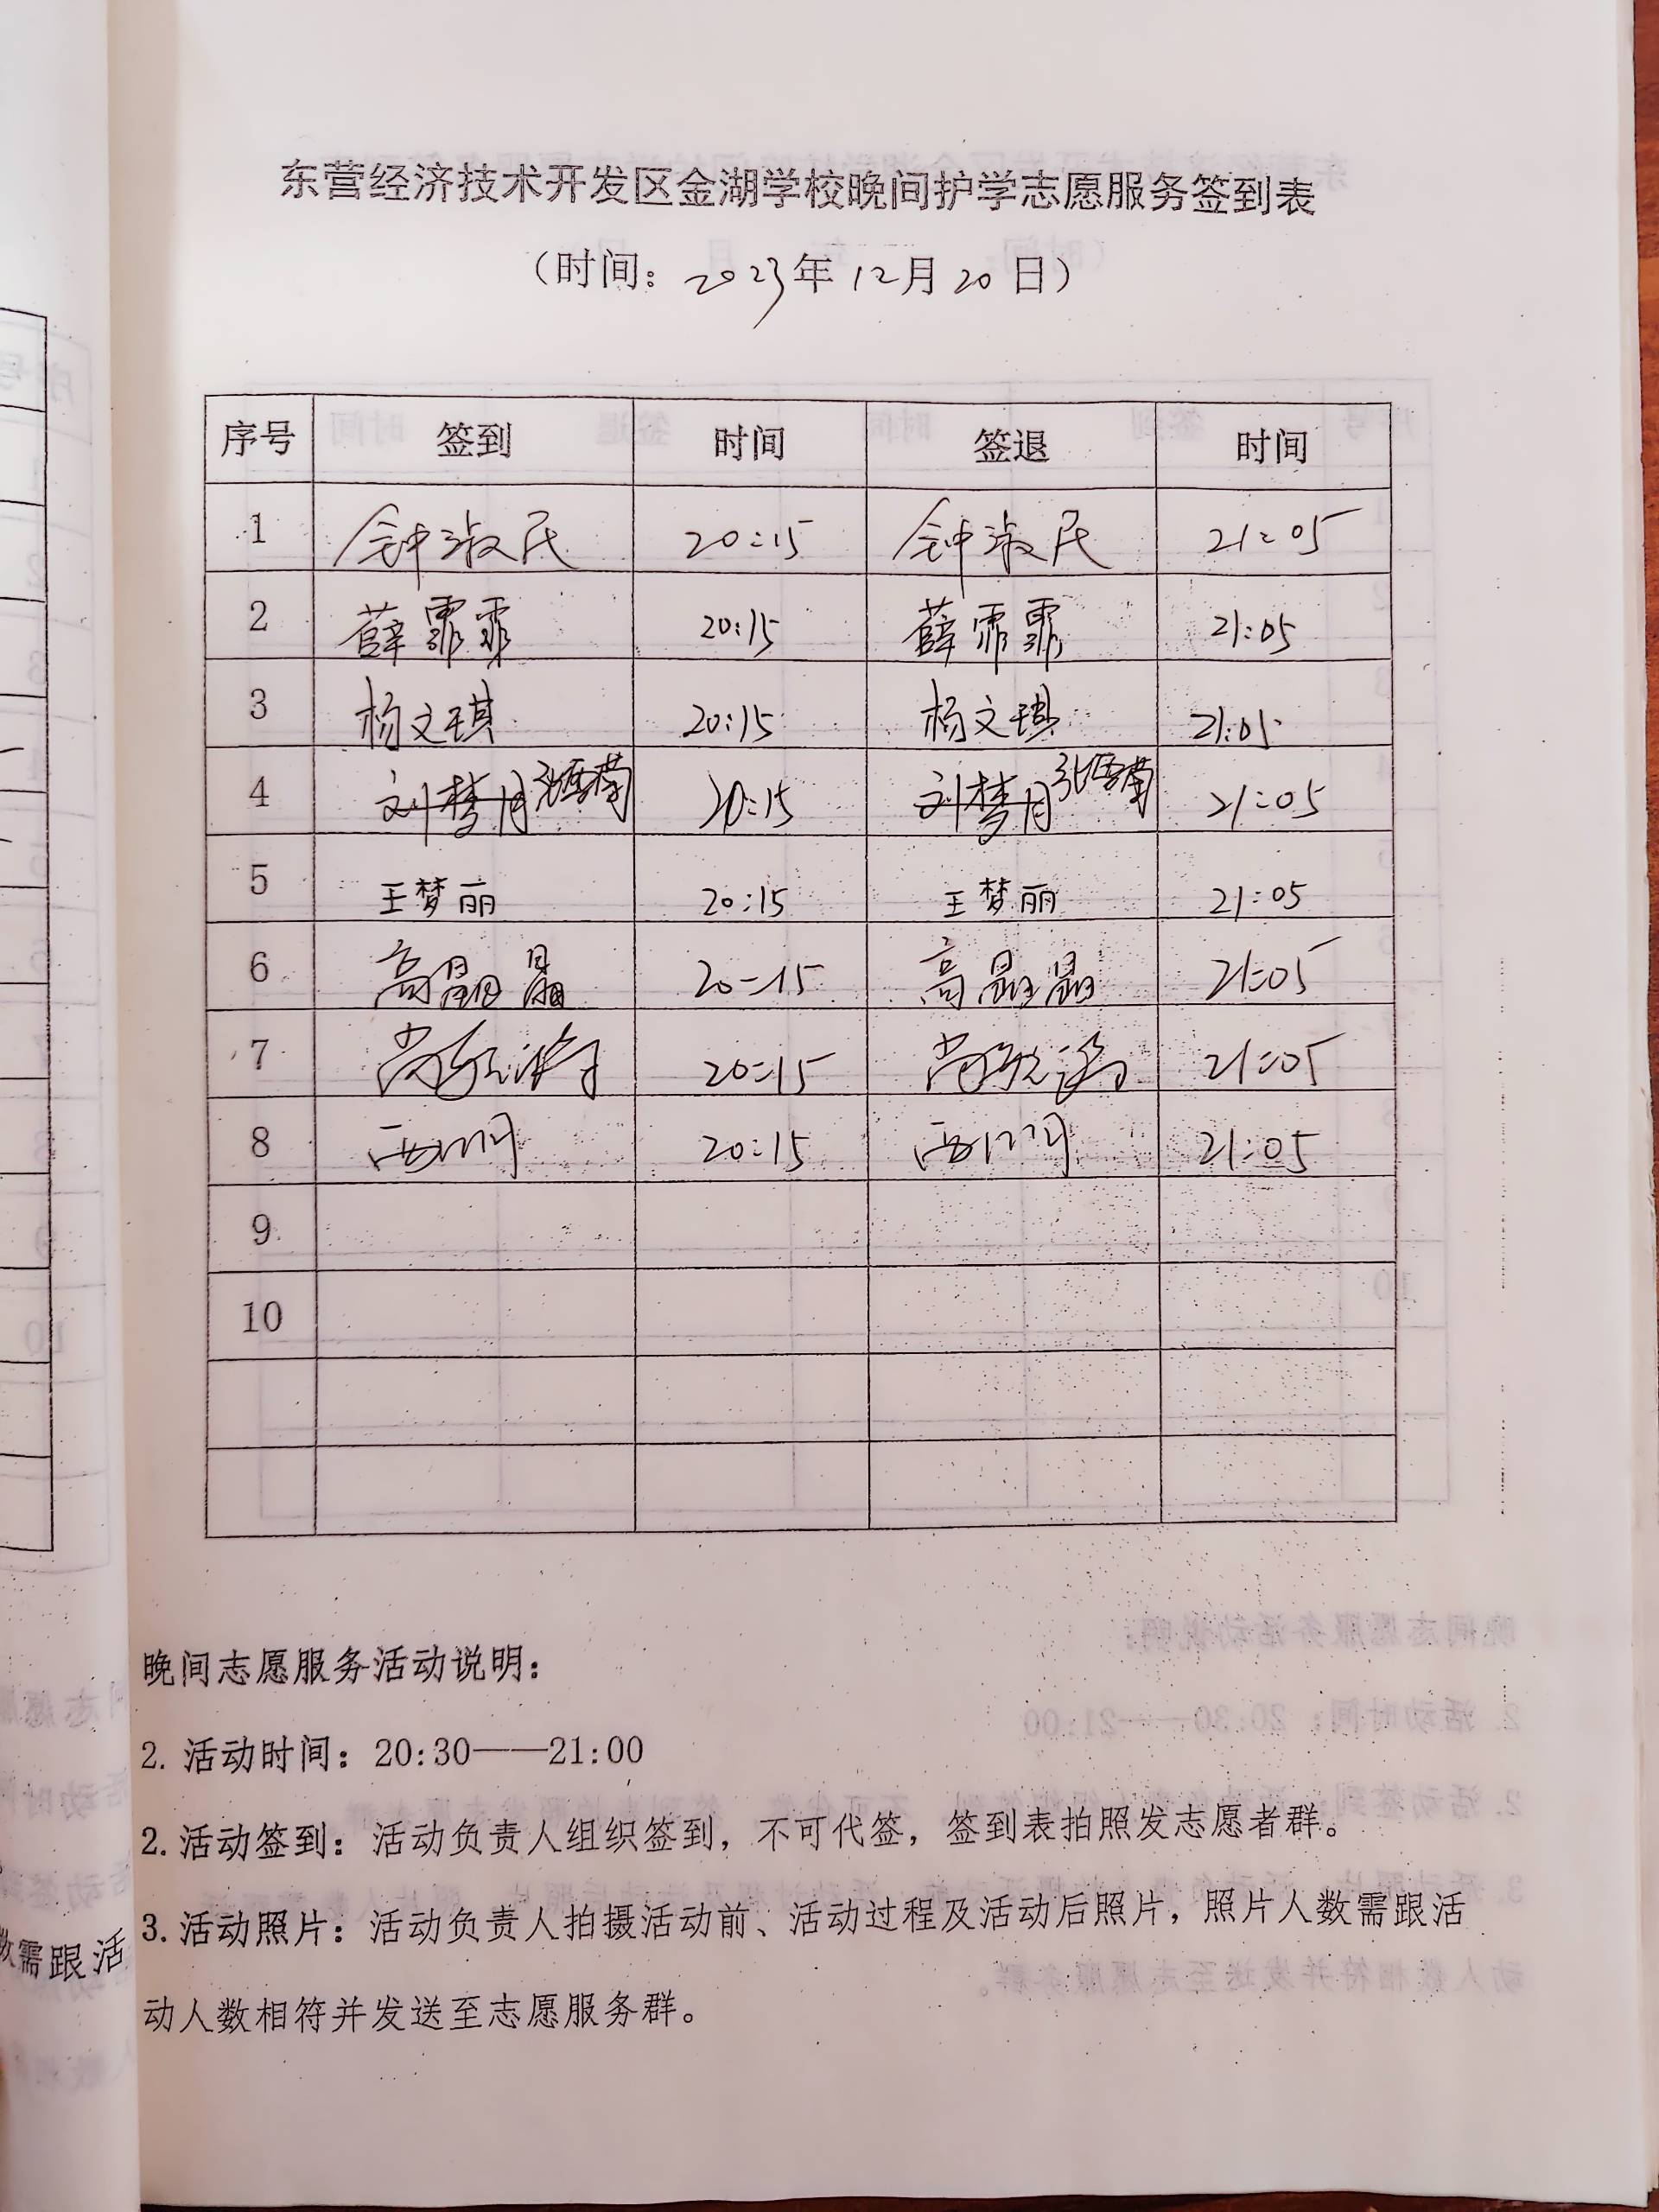 东营经济技术开发区金湖学校晚间护学志愿服务签到表
（时间：2023年12月20日）
序号 签到 时间 签退 时间
1 钟淑民 20:15 钟淑民 21:05
2 薛霏霏 20:15 薛霏霏 21:05
3 杨文琪 20:15 杨文琪 21:05
4 刘梦月 20:15 刘梦月 21:05
5 王梦丽 20:15 王梦丽 21:05
6 高晶晶 20:15 高晶晶 21:05
7 20:15 21:05
8 20:15 21:05
9
10
晚间志愿服务活动说明：
2. 活动时间：20:30——21:00
2. 活动签到：活动负责人组织签到，不可代签，签到表拍照发志愿者群。
3. 活动照片：活动负责人拍摄活动前、活动过程及活动后照片，照片人数需跟活
动人数相符并发送至志愿服务群。
需跟活